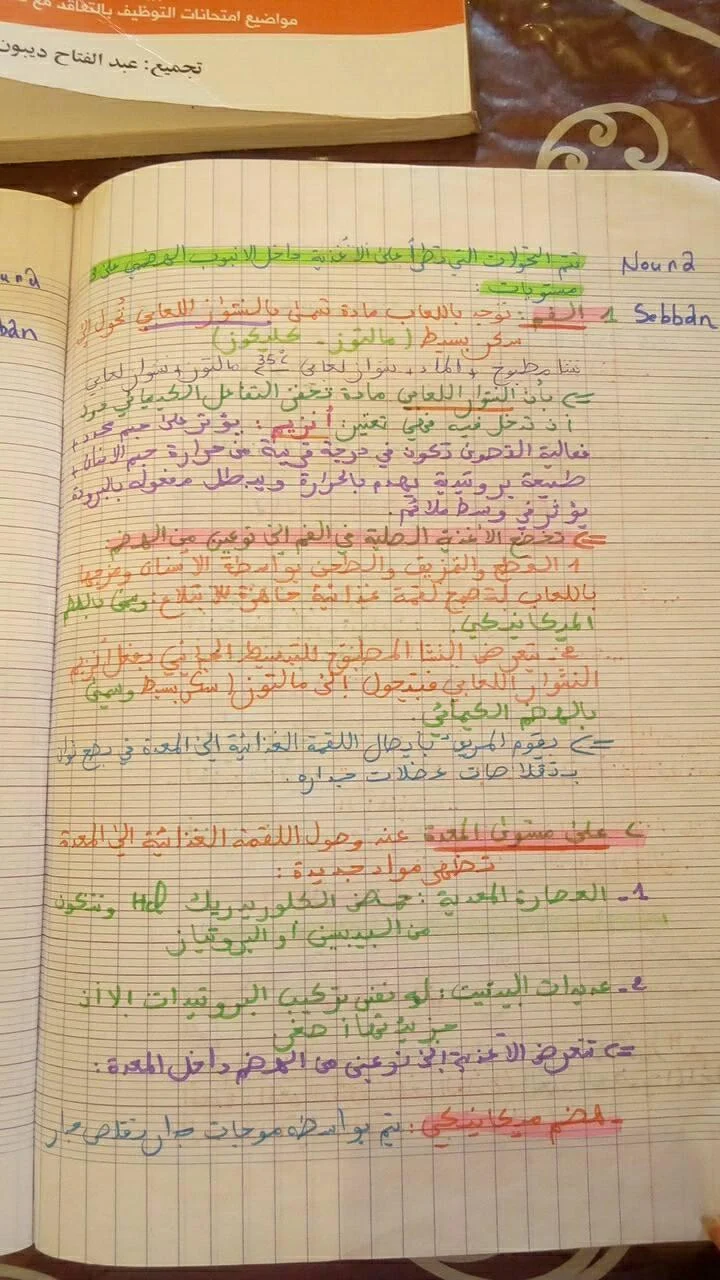 مواضيع امتحانات التوظيف بالتعاقد مع
تجميع: عبد الفتاح ديبون
ound
ban
Nound
Sebban
تتم التحولات التي تطرأ على الأغذية داخل الانبوب الهضمي على 3
مستويات:
1 الفم: توجد باللعاب مادة تسمى بالنشواز اللعابي تحول إلى
سكر بسيط (مالتوز - كليكوز)
نشا مطبوخ + الماء + نشواز لعابي 35c مالتوز + نشواز لعابي
=> بأن النشواز اللعابي مادة تحفز التفاعل الكيميائي دون
أن تدخل فيه فهي تعتبر أنزيم: يؤثر على جسم محدد +
فعالية القصوى تكون في درجة قريبة من حرارة جسم الانسان +
طبيعة بروتيدية يهدم بالحرارة ويبطل مفعوله بالبرودة
يؤثر في وسط ملائم.
=> تخضع الأغذية الصلبة في الفم إلى نوعين من الهضم
1 القطع والتمزيق والطحن بواسطة الأسنان ومزجها
باللعاب لتصبح لقمة غذائية جاهزة للابتلاع: وسمي بالهضم
الميكانيكي.
يتعرض النشا المطبوخ للتبسيط الجزئي بفعل أنزيم
النشواز اللعابي فيتحول إلى مالتوز (سكر بسيط وسمي
بالهضم الكيميائي.
=> يقوم المريء بإيصال اللقمة الغذائية إلى المعدة في بضع ثوان
بتقلاصات عضلات جداره.
على مستوى المعدة عند وصول اللقمة الغذائية إلى المعدة
تظهر مواد جديدة:
1- العصارة المعدية: حمض الكلوريدريك Hcl وتتكون
من البيبسين أو البروتياز
2- عديدات البيبتيد: له نفس تركيب البروتيدات إلا أن
جزيئتها أصغر
=> تتعرض الأغذية إلى نوعين من الهضم داخل المعدة:
- هضم ميكانيكي: يتم بواسطة موجات تقلص جدار